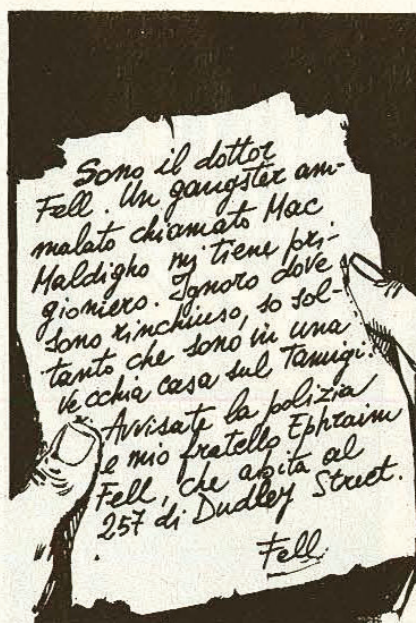 Sono il dottor
Fell. Un gangster am-
malato chiamato Mac
Maldigho mi tiene pri-
gioniero. Ignoro dove
sono rinchiuso, so sol-
tanto che sono in una
vecchia casa sul Tamigi.
Avvisate la polizia
e mio fratello Ephraim
Fell, che abita al
257 di Dudley Street.
Fell